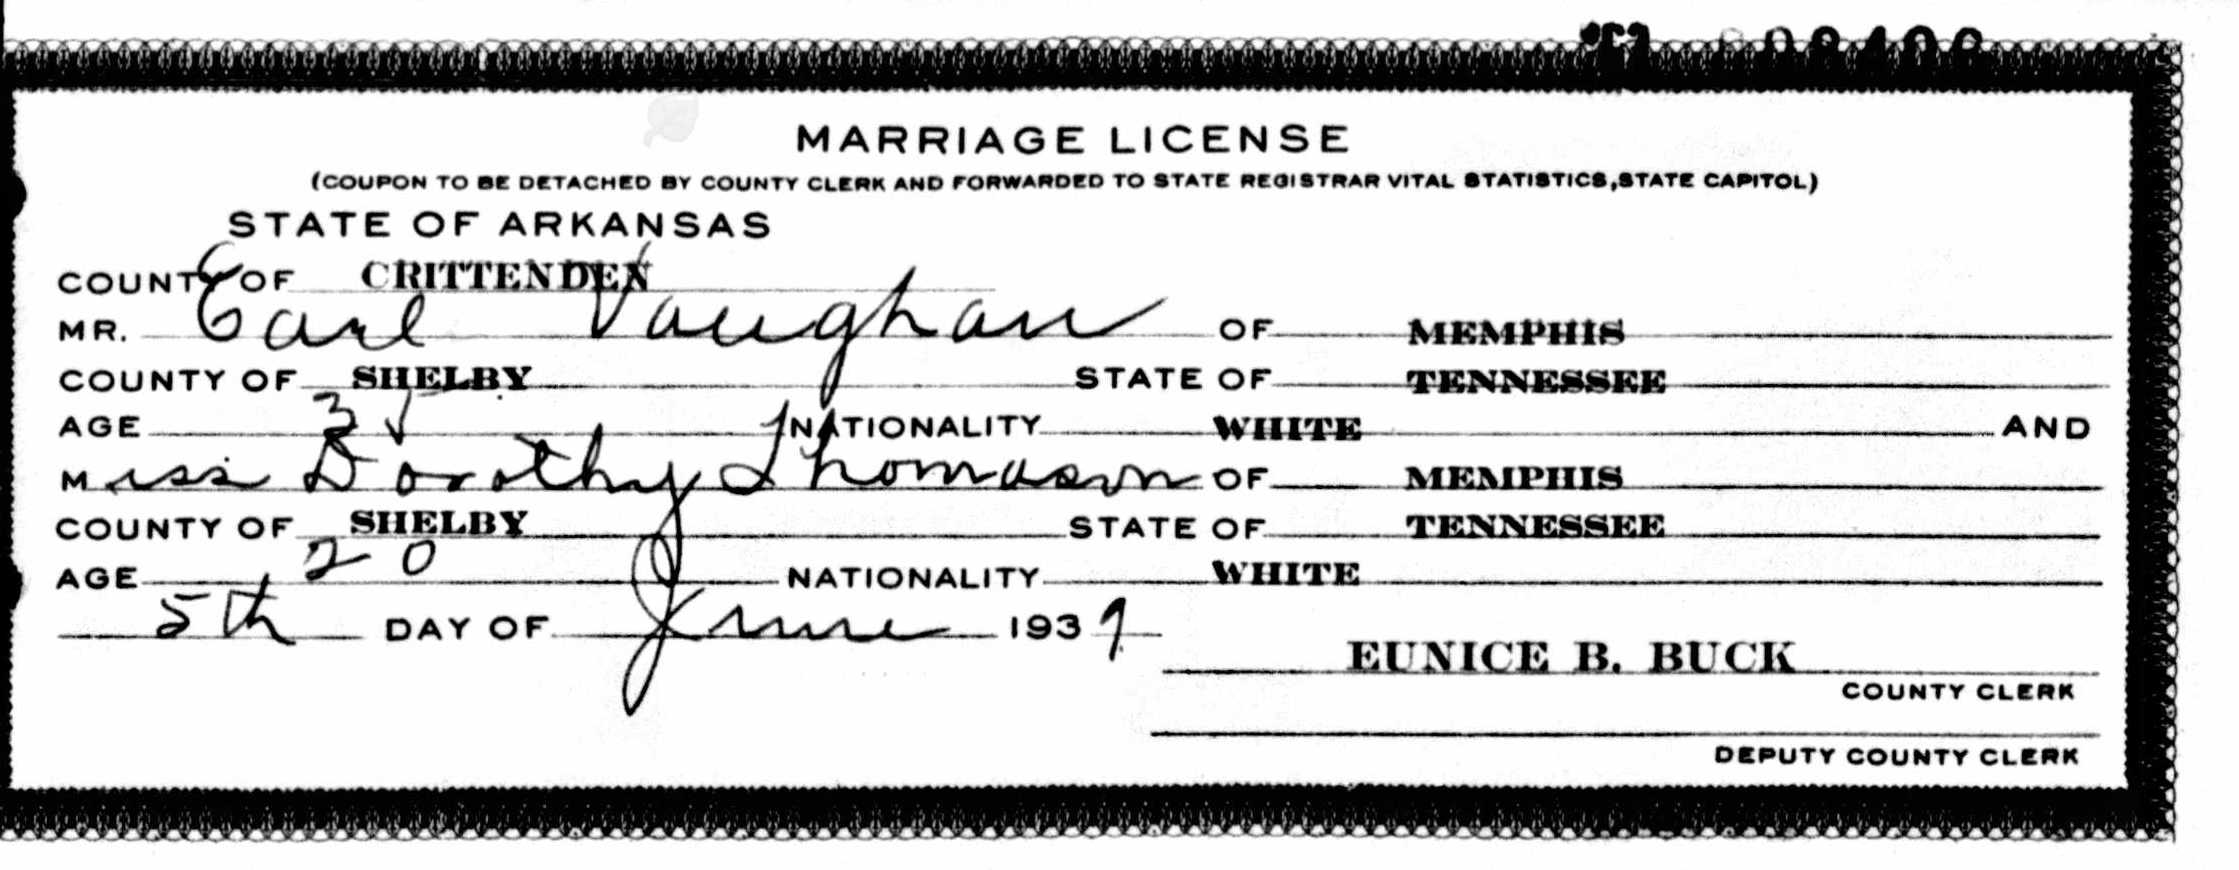 MARRIAGE LICENSE
(COUPON TO BE DETACHED BY COUNTY CLERK AND FORWARDED TO STATE REGISTRAR VITAL STATISTICS, STATE CAPITOL)
STATE OF ARKANSAS
COUNTY OF CRITTENDEN
MR. Earl Vaughan OF MEMPHIS
COUNTY OF SHELBY STATE OF TENNESSEE
AGE NATIONALITY WHITE AND
Miss Dorothy Thomason OF MEMPHIS
COUNTY OF SHELBY STATE OF TENNESSEE
AGE 20 NATIONALITY WHITE
5th DAY OF June 1939
EUNICE B. BUCK
COUNTY CLERK
DEPUTY COUNTY CLERK